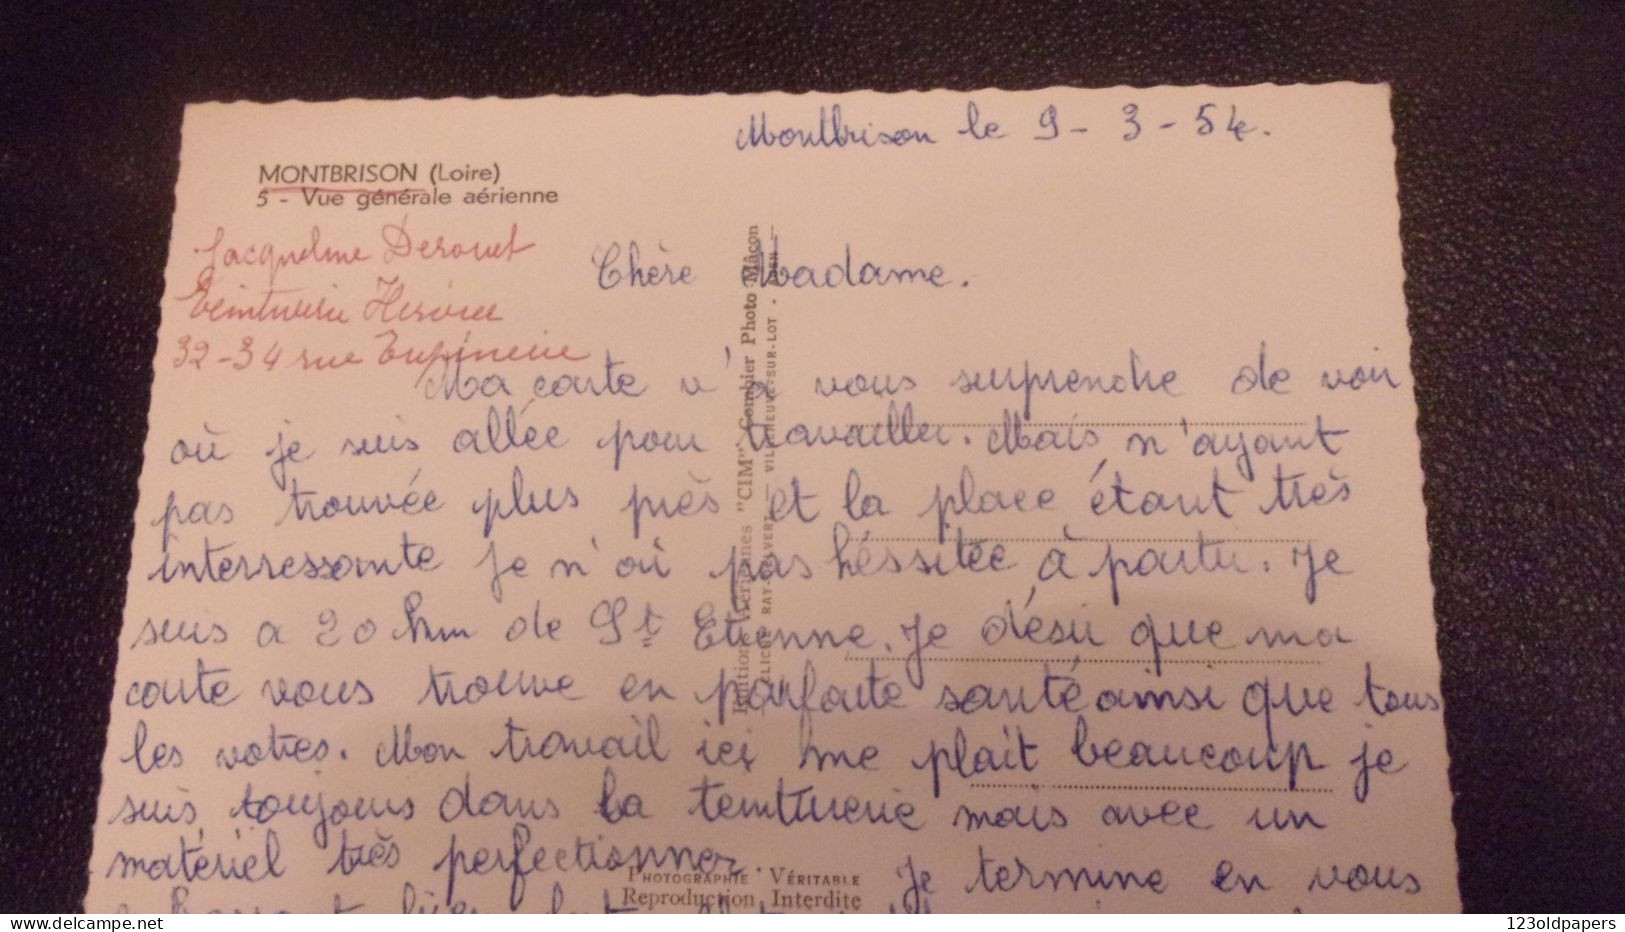 Montbrison le 9-3-54.
MONTBRISON (Loire)
5 - Vue générale aérienne
Jacqueline Derouet
Teinturerie
32-34 rue Tupinerie
Chère Madame.
Ma carte v'a vous surprendre de voir
où je suis allée pour travailler. Mais n'ayant
pas trouvée plus près et la place étant très
interressante je n'ai pas héssitée à partir. Je
suis a 20 km de St Etienne. Je désir que ma
carte vous trouve en parfaite santé ainsi que tous
les votres. Mon travail ici me plait beaucoup je
suis toujours dans la teinturerie mais avec un
matériel très perfectionner. Je termine en vous
Editions Aériennes "CIM" Combier Photo Mâcon
CLICHÉ RAY DELVERT — VILLENEUVE-SUR-LOT -
PHOTOGRAPHIE VÉRITABLE
Reproduction Interdite
123oldpapers